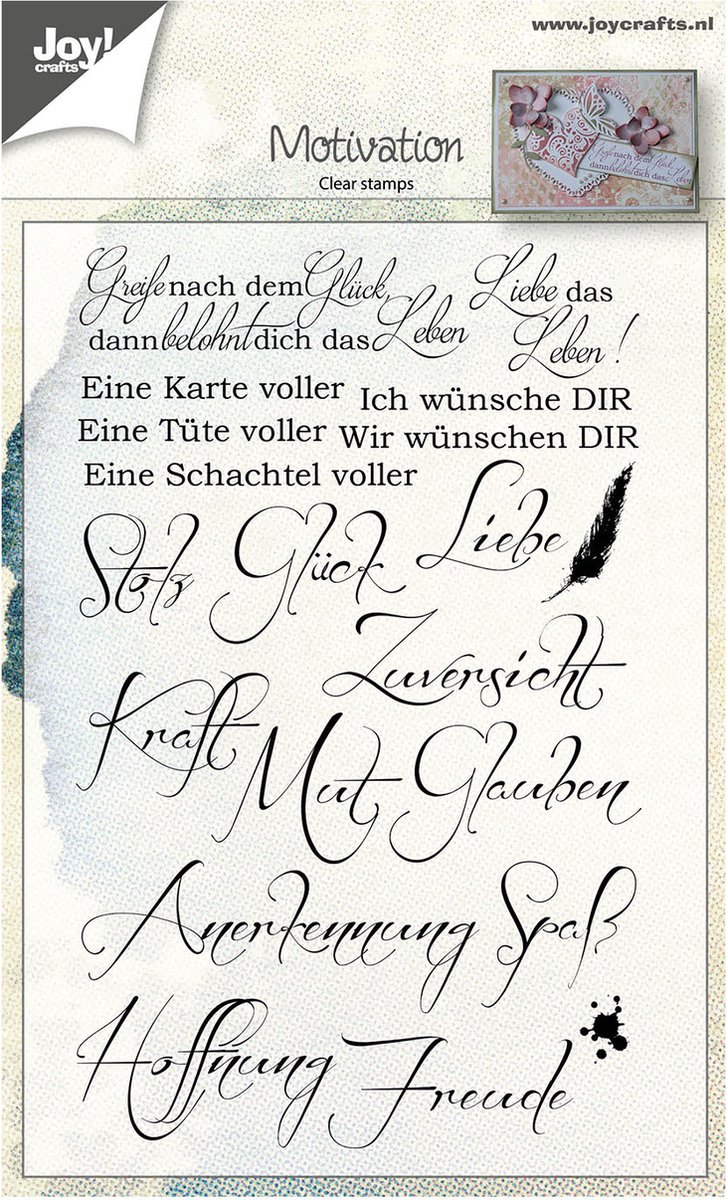 Joy!
crafts
www.joycrafts.nl
Motivation
Clear stamps
Greife nach dem Glück,
dann belohnt dich das Leben
Liebe das
Leben!
Eine Karte voller
Ich wünsche DIR
Eine Tüte voller
Wir wünschen DIR
Eine Schachtel voller
Liebe
Stolz
Glück
Zuversicht
Kraft
Mut
Glauben
Anerkennung
Spaß
Hoffnung
Freude
Greife nach dem Glück
dann belohnt dich das Leben